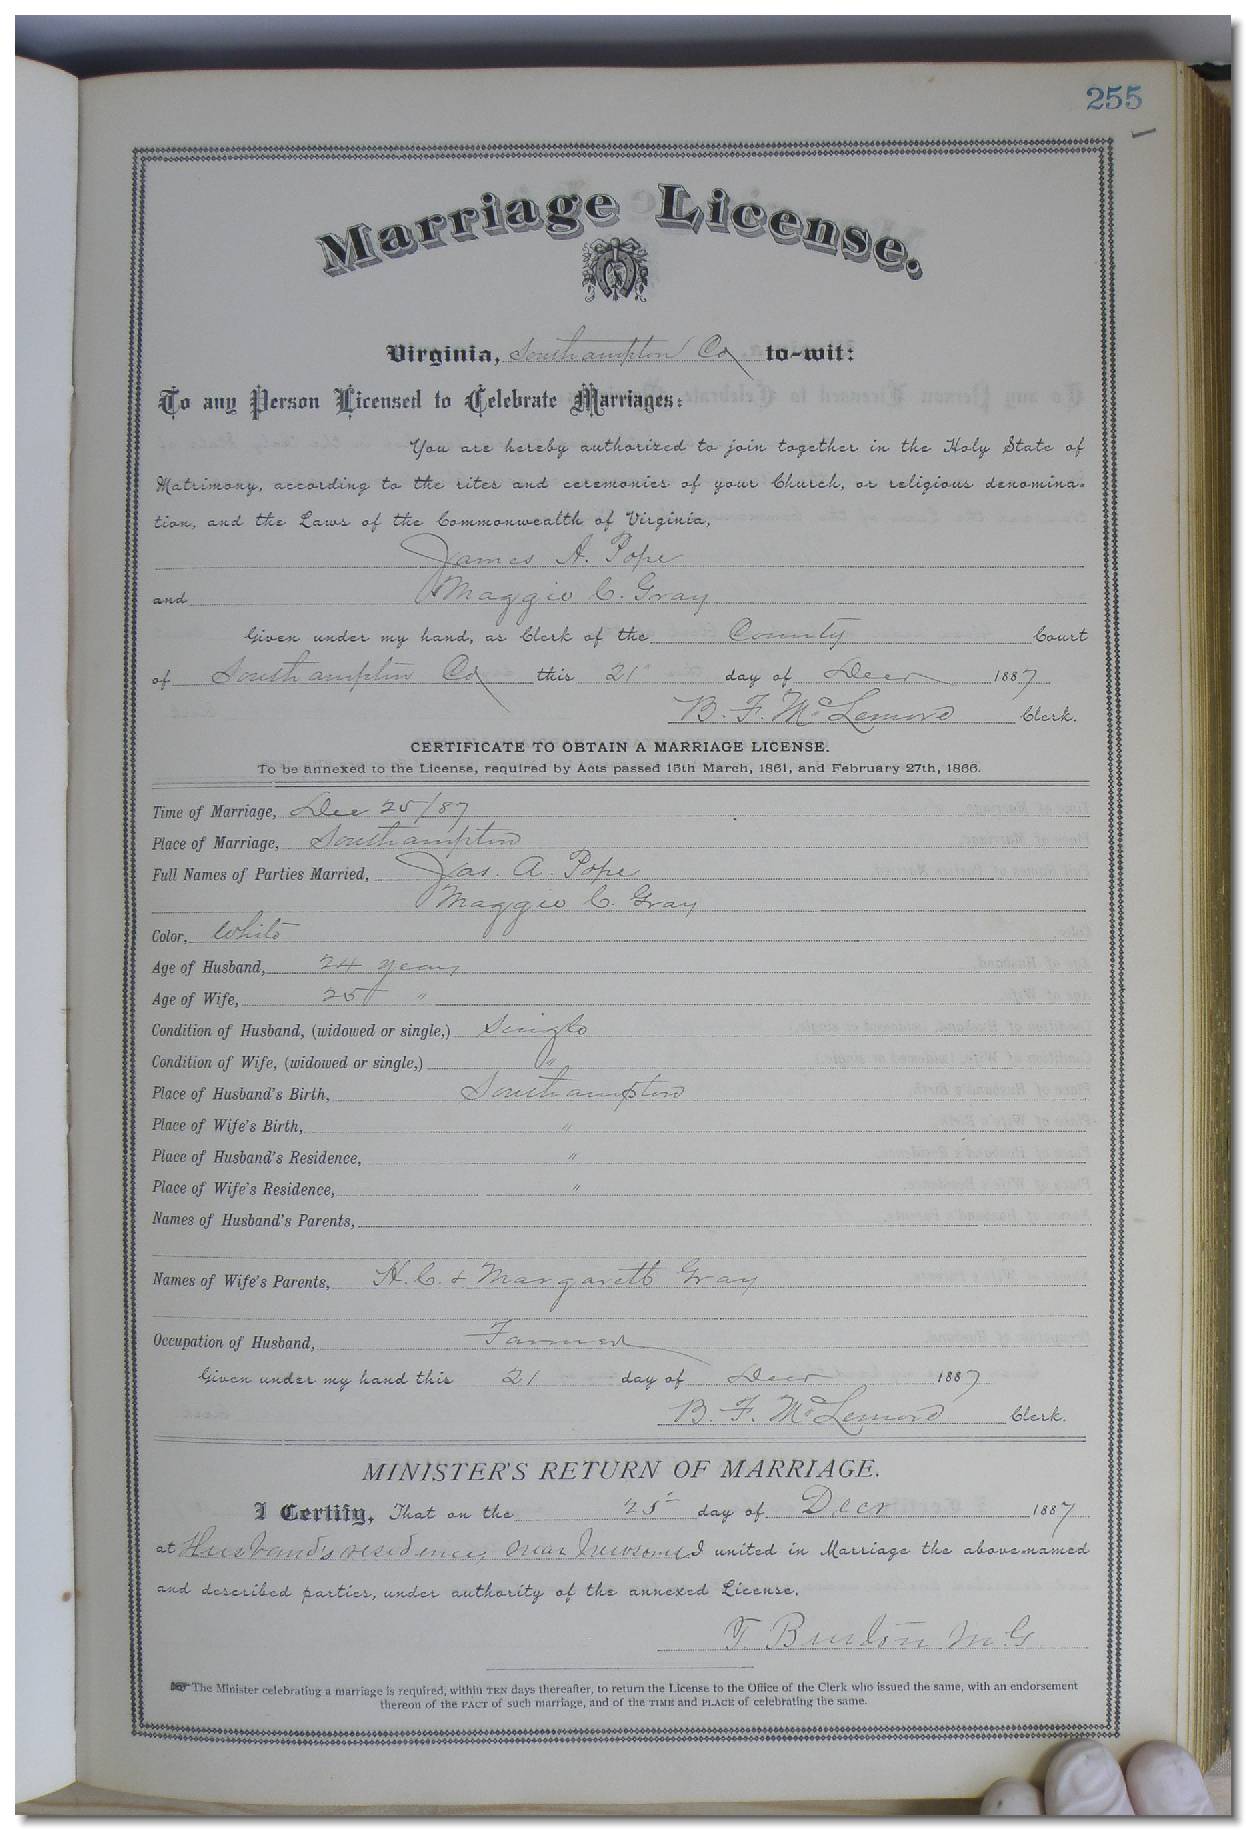 255
Marriage License.
Virginia, Southampton Co to-wit:
To any Person Licensed to Celebrate Marriages:
You are hereby authorized to join together in the Holy State of
Matrimony, according to the rites and ceremonies of your Church, or religious denomina-
tion, and the Laws of the Commonwealth of Virginia,
James A. Pope
and Maggie C. Gray
Given under my hand, as Clerk of the County Court
of Southampton Co this 21 day of Decr 1887
B. F. McLemore Clerk.
CERTIFICATE TO OBTAIN A MARRIAGE LICENSE.
To be annexed to the License, required by Acts passed 15th March, 1861, and February 27th, 1866.
Time of Marriage, Dec 25/87
Place of Marriage, Southampton
Full Names of Parties Married, Jas. A. Pope
Maggie C. Gray
Color, White
Age of Husband, 24 years
Age of Wife, 25 "
Condition of Husband, (widowed or single,) Single
Condition of Wife, (widowed or single,) "
Place of Husband's Birth, Southampton
Place of Wife's Birth, "
Place of Husband's Residence, "
Place of Wife's Residence, "
Names of Husband's Parents,
Names of Wife's Parents, H. C. & Margarett Gray
Occupation of Husband, Farmer
Given under my hand this 21 day of Decr 1887
B. F. McLemore Clerk.
MINISTER'S RETURN OF MARRIAGE.
I Certify, That on the 25 day of Decr 1887
at Husband's residence, near Newsoms I united in Marriage the above-named
and described parties, under authority of the annexed License.
T. M.G.
The Minister celebrating a marriage is required, within TEN days thereafter, to return the License to the Office of the Clerk who issued the same, with an endorsement
thereon of the FACT of such marriage, and of the TIME and PLACE of celebrating the same.